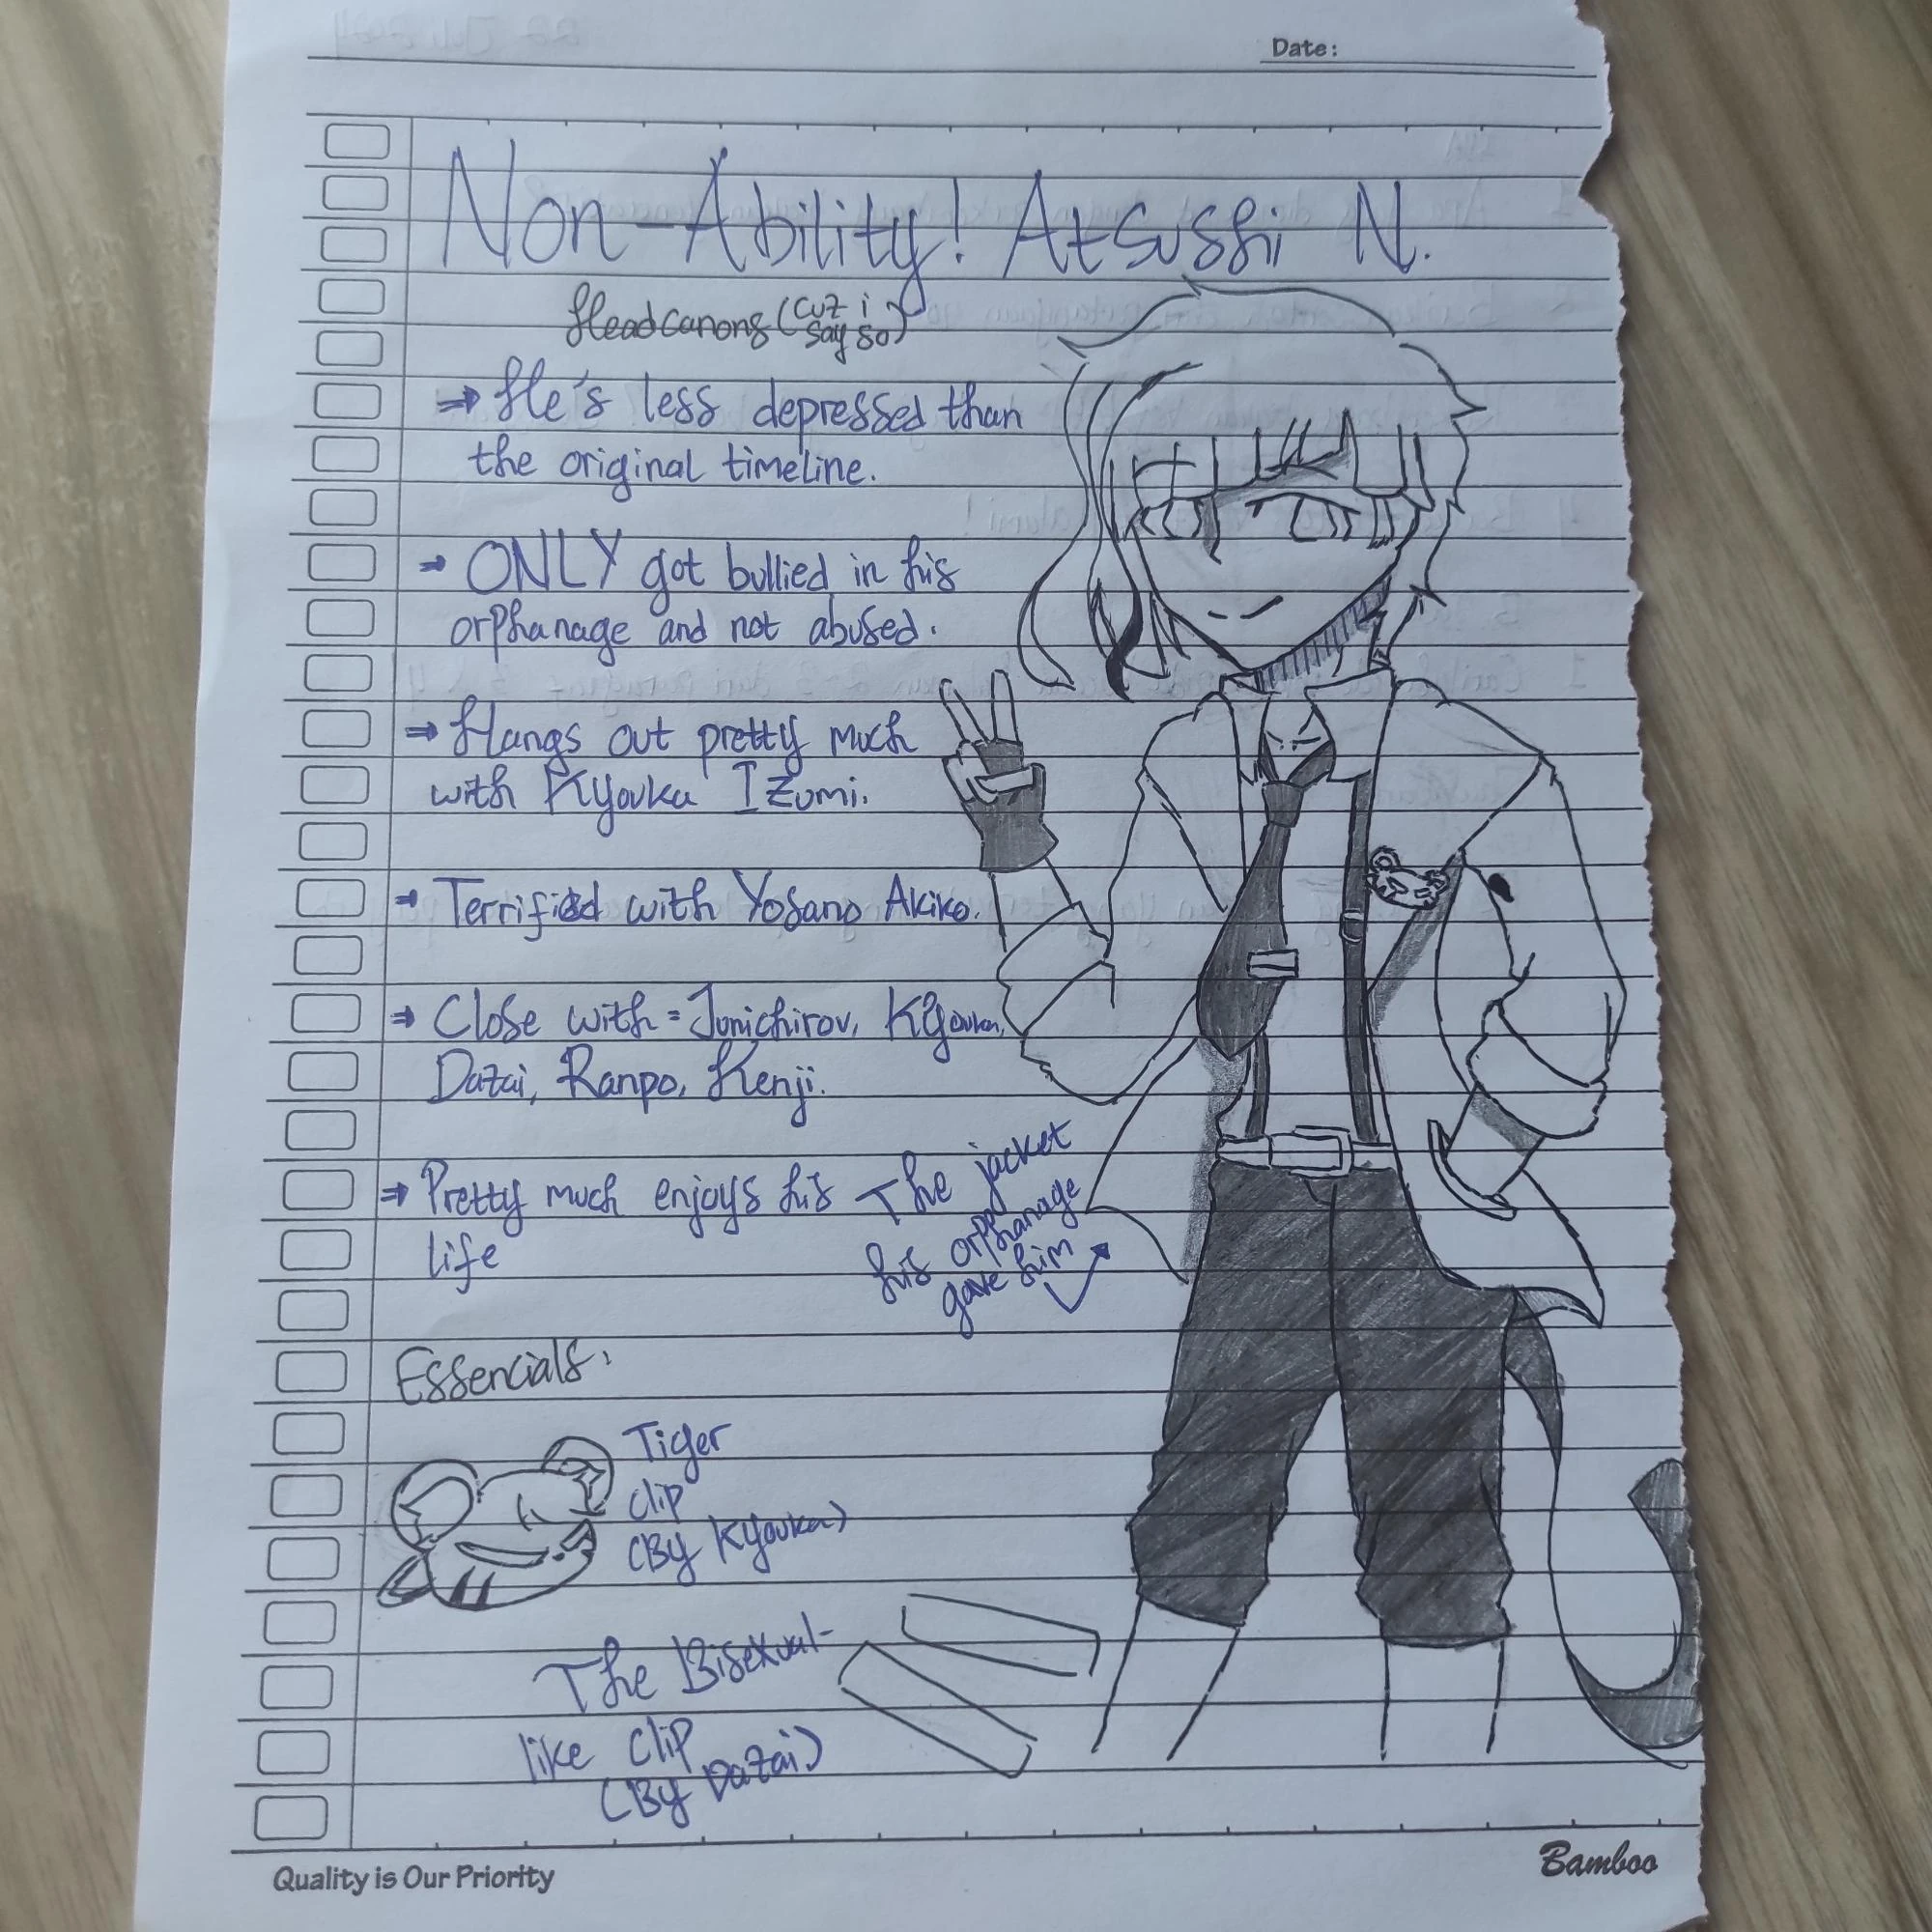 Date:
Non-Ability! Atsushi N.
Headcanons (cuz i
say so)
⇒ He's less depressed than
the original timeline.
⇒ ONLY got bullied in his
orphanage and not abused.
⇒ Hangs out pretty much
with Kyouka Izumi.
⇒ Terrified with Yosano Akiko.
⇒ Close with = Junichirou, Kyouka,
Dazai, Ranpo, Kenji.
⇒ Pretty much enjoys his
life
The jacket
his orphanage
gave him
Essencials:
Tiger
clip
(By Kyouka)
The Bisexual-
like clip
(By Dazai)
Quality is Our Priority
Bamboo